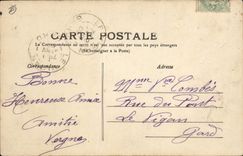 CARTE POSTALE
La Correspondance au recto n'est pas acceptée par tous les pays étrangers
(Se renseigner à la Poste)
Correspondance
Adresse
Bonne
Heureuse Année
Amitié
Vergne
Mme Vve Combés
Rue du Pont
Le Vigan
Gard